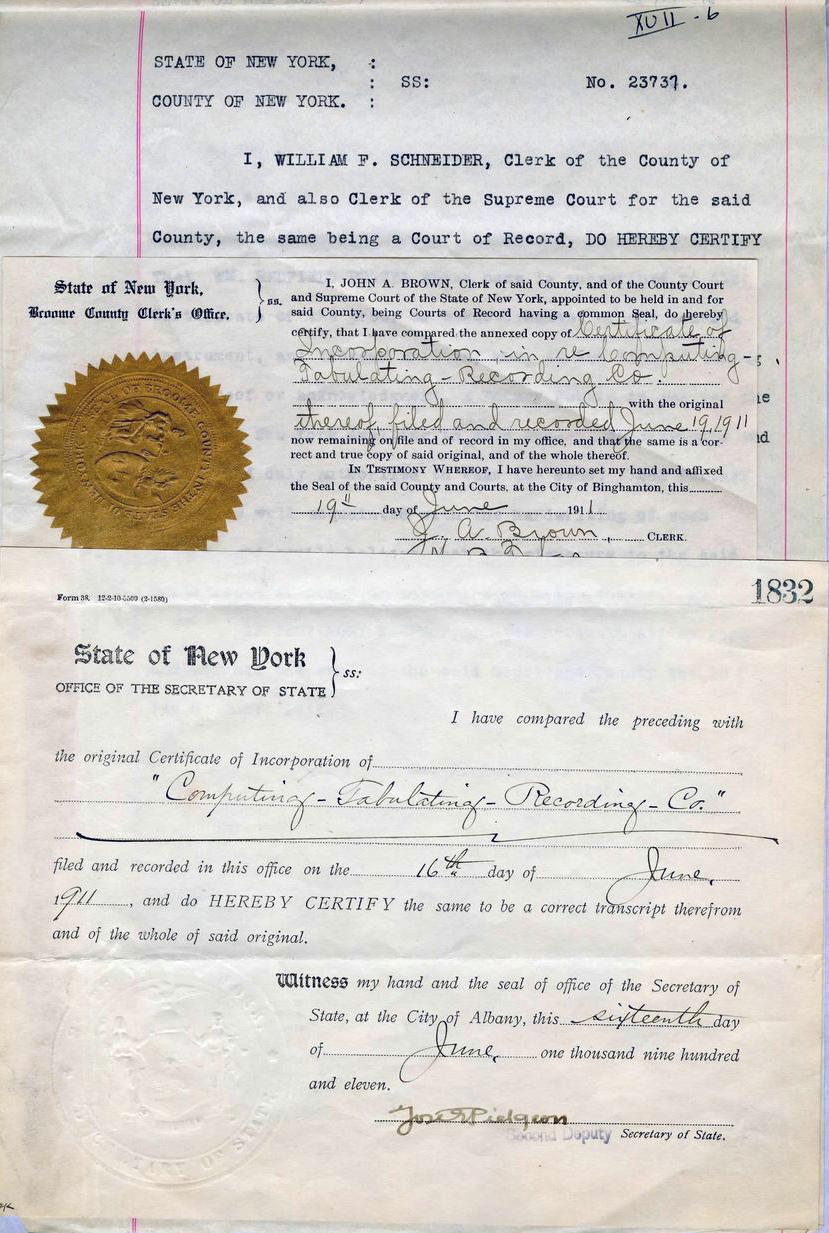 XVII - 6
STATE OF NEW YORK, :
: SS: No. 23737.
COUNTY OF NEW YORK. :
I, WILLIAM F. SCHNEIDER, Clerk of the County of
New York, and also Clerk of the Supreme Court for the said
County, the same being a Court of Record, DO HEREBY CERTIFY
State of New York,
Broome County Clerk's Office,
ss.
I, JOHN A. BROWN, Clerk of said County, and of the County Court
and Supreme Court of the State of New York, appointed to be held in and for
said County, being Courts of Record having a common Seal, do hereby
certify, that I have compared the annexed copy of Certificate of
Incorporation in re Computing-
Tabulating-Recording Co.
with the original
thereof, filed and recorded June 19, 1911
now remaining on file and of record in my office, and that the same is a cor-
rect and true copy of said original, and of the whole thereof.
IN TESTIMONY WHEREOF, I have hereunto set my hand and affixed
the Seal of the said County and Courts, at the City of Binghamton, this
19" day of June 1911.
J. A. Brown, CLERK.
Form 38. 12-2-10-5500 (2-1580)
1832
State of New York
OFFICE OF THE SECRETARY OF STATE
ss:
I have compared the preceding with
the original Certificate of Incorporation of
"Computing-Tabulating-Recording-Co."
filed and recorded in this office on the 16th day of June,
1911, and do HEREBY CERTIFY the same to be a correct transcript therefrom
and of the whole of said original.
Witness my hand and the seal of office of the Secretary of
State, at the City of Albany, this sixteenth day
of June, one thousand nine hundred
and eleven.
Jos. E. Pidgeon
Second Deputy Secretary of State.